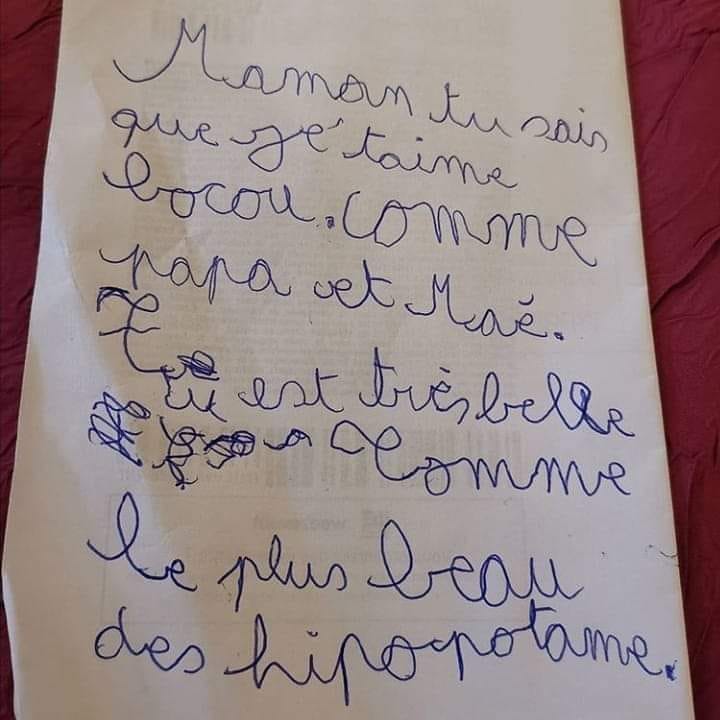 Maman tu sais
que je t'aime
bocou. comme
papa et Maé.
Tu est très belle
comme
le plus beau
des hipopotame.